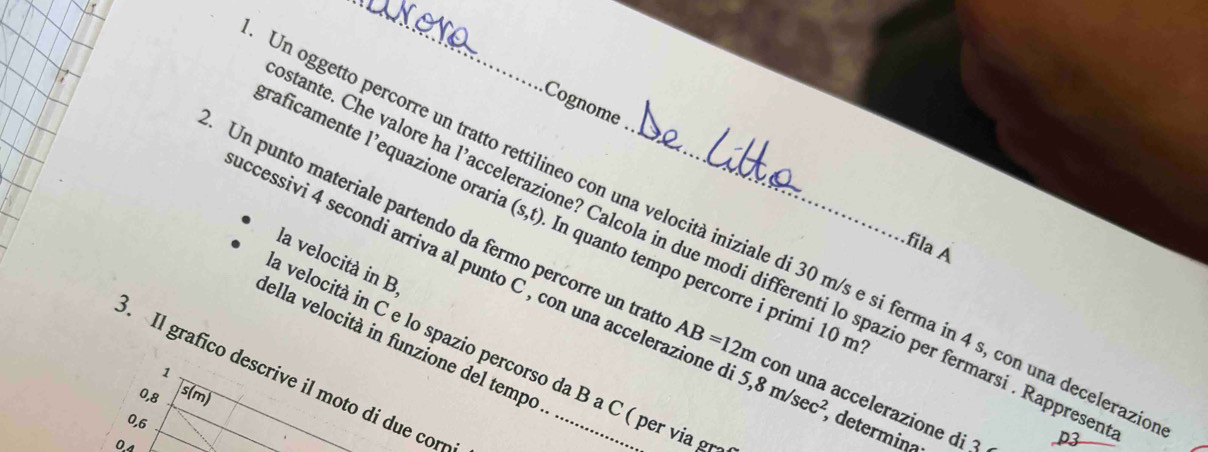 Cognome De Litto fila A
1. Un oggetto percorre un tratto rettilineo con una velocità iniziale di 30 m/s e si ferma in 4 s, con una decelerazione
costante. Che valore ha l'accelerazione? Calcola in due modi differenti lo spazio per fermarsi . Rappresenta
graficamente l'equazione oraria (s,t). In quanto tempo percorre i primi 10 m?
p3
2. Un punto materiale partendo da fermo percorre un tratto AB =12m con una accelerazione di 3
successivi 4 secondi arriva al punto C , con una accelerazione di 5,8 m/sec², determina:
• la velocità in B,
• la velocità in C e lo spazio percorso da B a C ( per via
della velocità in funzione del tempo..
3. Il grafico descrive il moto di due corpi
1
s(m)
0,8
0,6
0,4